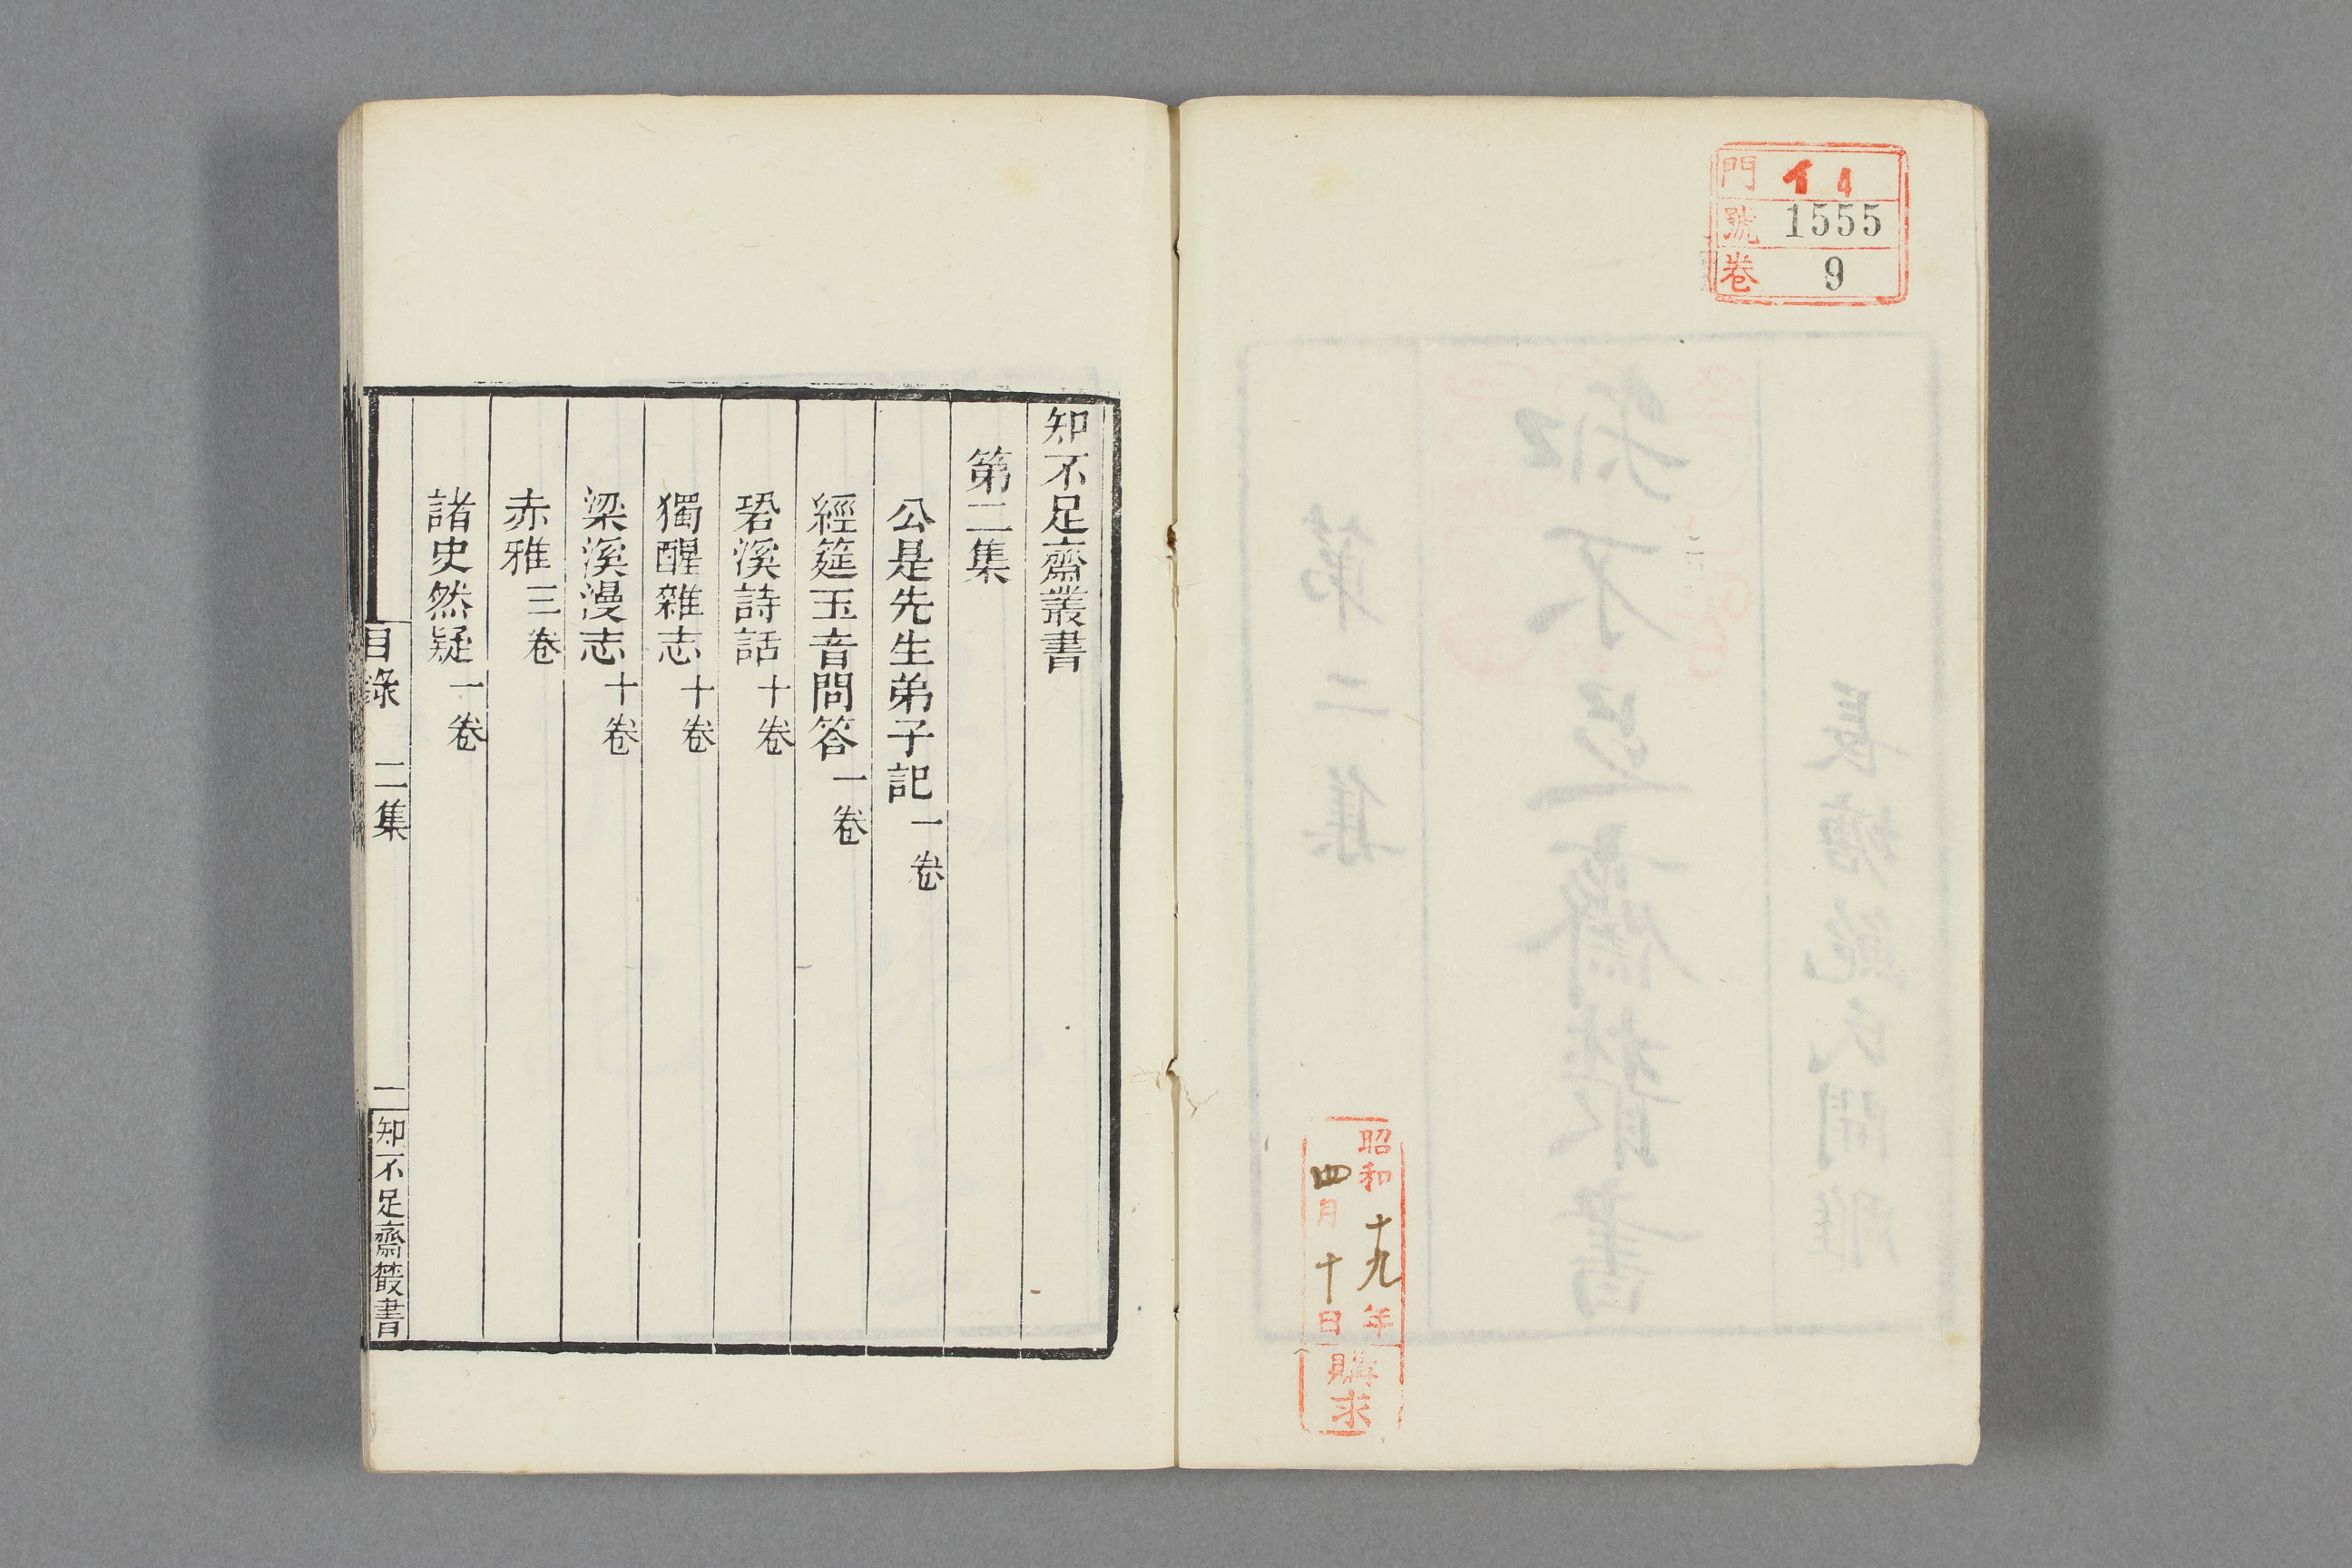 門 イ4
號 1555
卷 9
昭和十九年
四月十日
購求
知不足齋叢書
第二集
公是先生弟子記一卷
經筵玉音問答一卷
碧溪詩話十卷
獨醒雜志十卷
梁溪漫志十卷
赤雅三卷
諸史然疑一卷
目錄 二集 一 知不足齋叢書